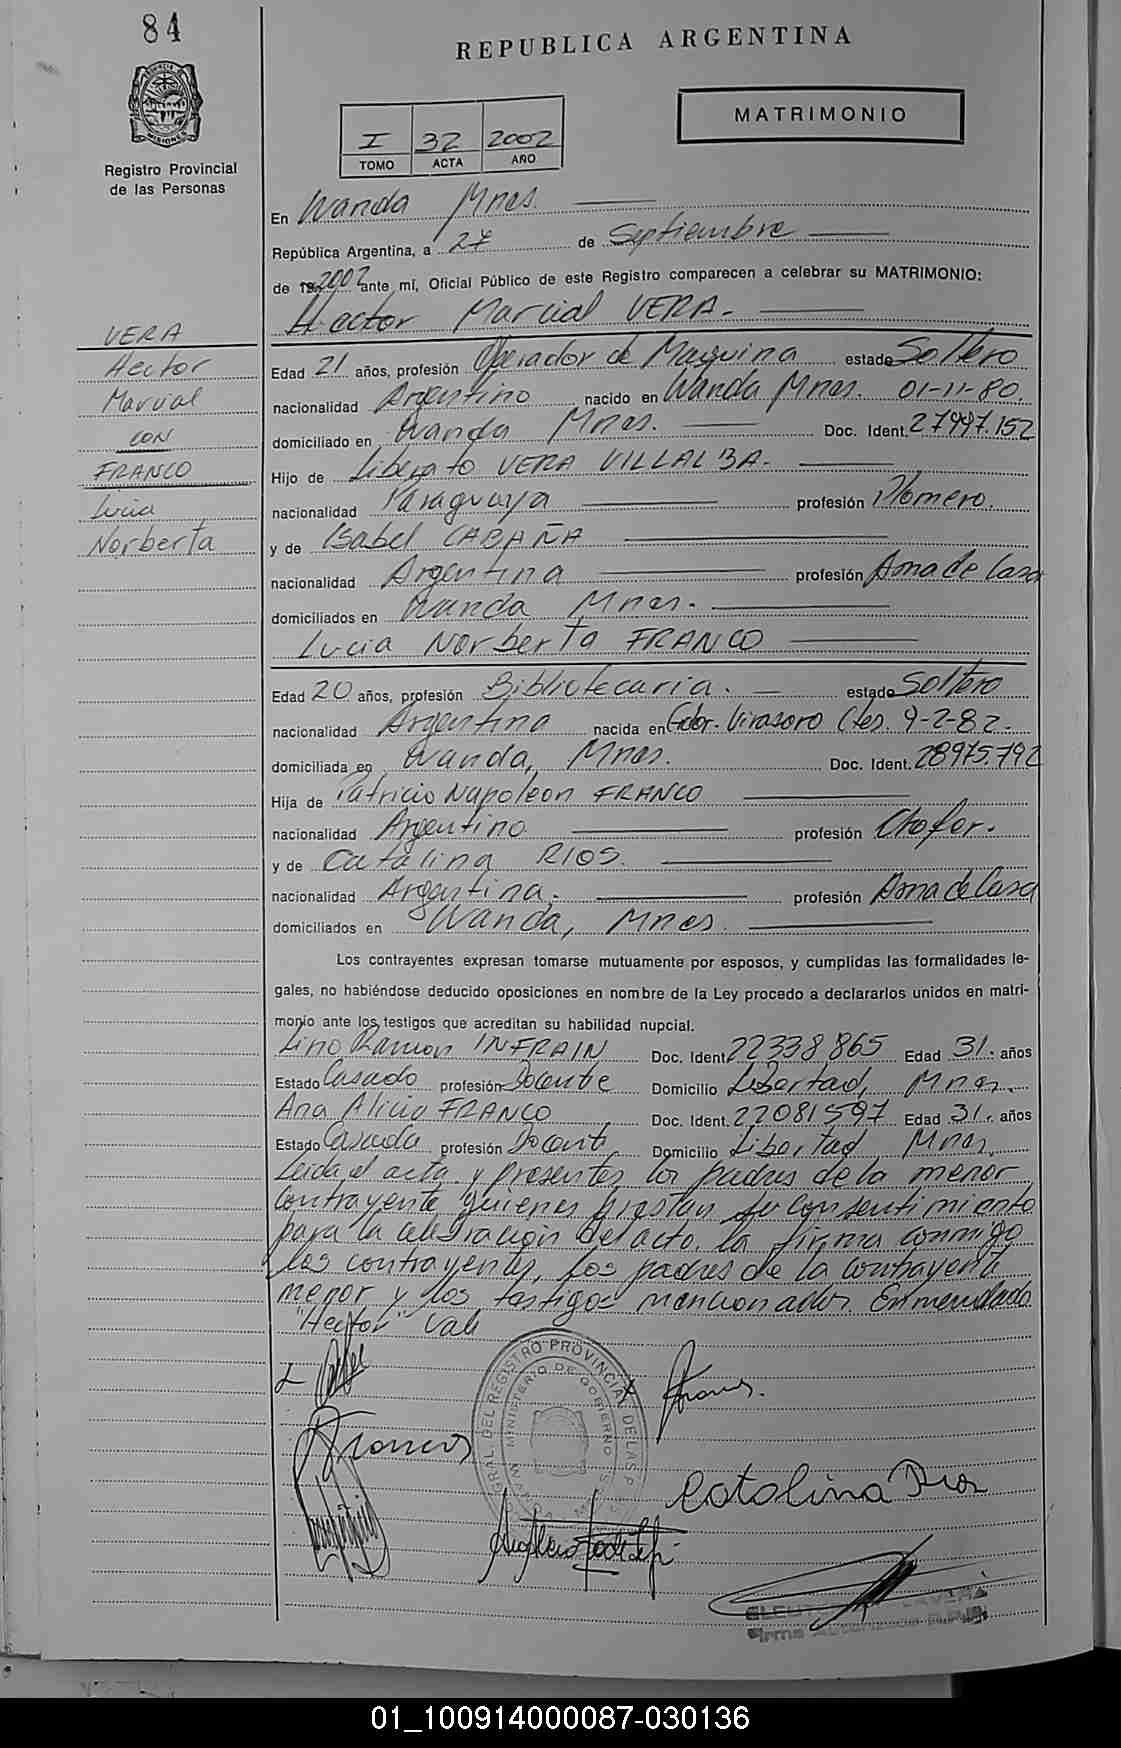 84
REPUBLICA ARGENTINA
MATRIMONIO
I 32 2002
TOMO ACTA AÑO
Registro Provincial
de las Personas
En Wanda Mnes.
República Argentina, a 27 de Septiembre
de 2002 ante mí, Oficial Público de este Registro comparecen a celebrar su MATRIMONIO:
Hector Marcial VERA.
VERA
Hector
Marcial
CON
FRANCO
Lucia
Norberta
Edad 21 años, profesión Operador de Maquina estado Soltero
nacionalidad Argentino nacido en Wanda Mnes. 01-11-80.
domiciliado en Wanda Mnes. Doc. Ident. 27997.152
Hijo de Liberato VERA VILLALBA.
nacionalidad Paraguaya profesión Plomero.
y de Isabel CABAÑA
nacionalidad Argentina profesión Ama de Casa
domiciliados en Wanda Mnes.
Lucia Norberta FRANCO
Edad 20 años, profesión Bibliotecaria. estado Soltero
nacionalidad Argentino nacida en Gdor. Virasoro Ctes. 9-2-82.-
domiciliada en Wanda, Mnes. Doc. Ident. 28975.792
Hija de Patricio Napoleon FRANCO
nacionalidad Argentino profesión Chofer.
y de Catalina RIOS.
nacionalidad Argentina. profesión Ama de Casa
domiciliados en Wanda, Mnes.
Los contrayentes expresan tomarse mutuamente por esposos, y cumplidas las formalidades le-
gales, no habiéndose deducido oposiciones en nombre de la Ley procedo a declararlos unidos en matri-
monio ante los testigos que acreditan su habilidad nupcial.
Lino Ramon INFRAIN Doc. Ident 22338865 Edad 31. años
Estado Casado profesión Docente Domicilio Libertad, Mnes.
Ana Alicia FRANCO Doc. Ident. 22081597 Edad 31. años
Estado Casada profesión Docente Domicilio Libertad Mnes.
Leida el acta y presentes los padres de la menor
contrayente quienes prestan su consentimiento
para la celebracion del acto, la firma conmigo
los contrayentes, los padres de la contrayente
menor y los testigos mencionados. Enmendado
"Hector" Vale
Catalina Rios
01_100914000087-030136